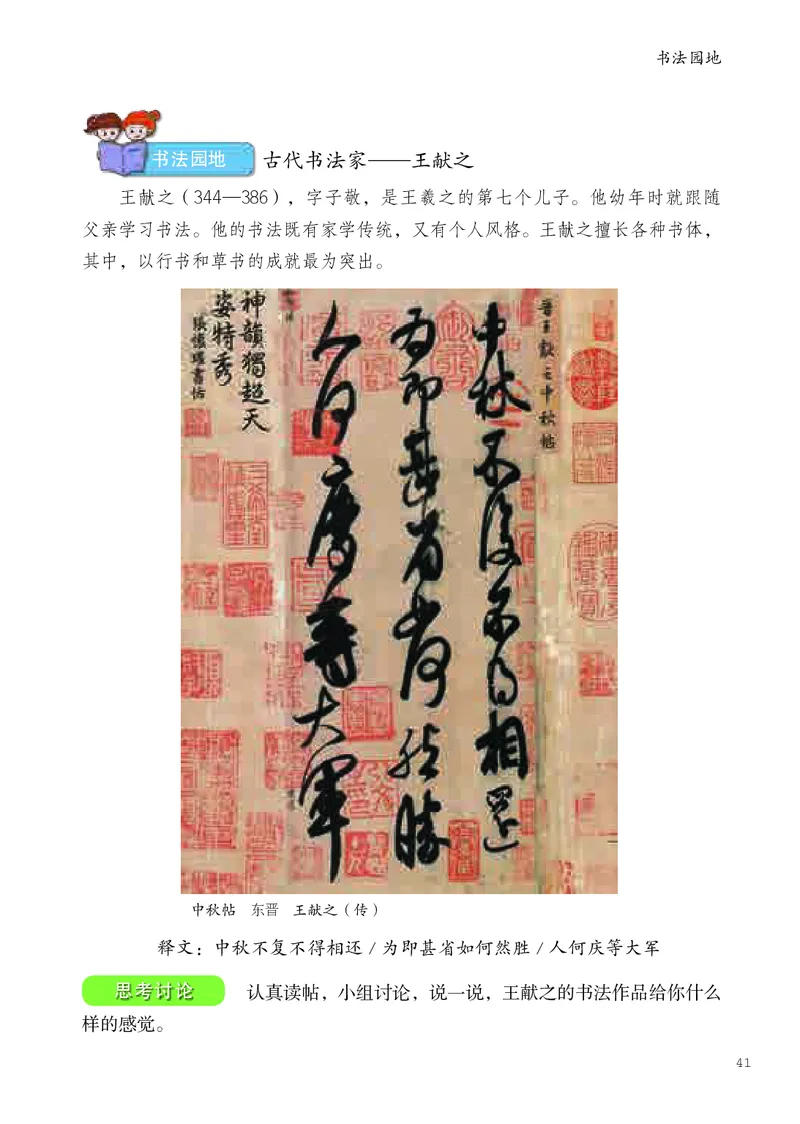 书法园地
书法园地
古代书法家——王献之
王献之（344—386），字子敬，是王羲之的第七个儿子。他幼年时就跟随
父亲学习书法。他的书法既有家学传统，又有个人风格。王献之擅长各种书体，
其中，以行书和草书的成就最为突出。
晋王献之中秋帖
中秋不复不得相还
为即甚省如何然胜
人何庆等大军
神韻獨超天
姿特秀
张懷瓘書估
三希堂
中秋帖 东晋 王献之（传）
释文：中秋不复不得相还 / 为即甚省如何然胜 / 人何庆等大军
思考讨论
认真读帖，小组讨论，说一说，王献之的书法作品给你什么
样的感觉。
41